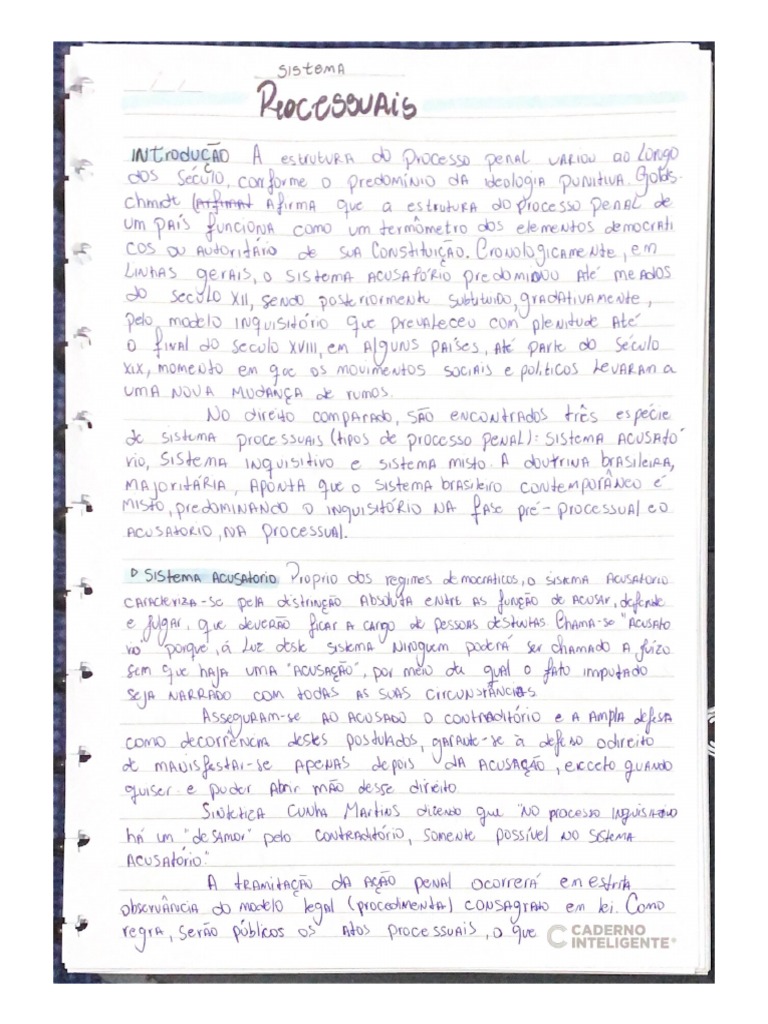 SISTEMA
PROCESSUAIS
INTRODUÇÃO A ESTRUTURA DO PROCESSO PENAL VARIOU AO LONGO
DOS SÉCULO, CONFORME O PREDOMÍNIO DA IDEOLOGIA PUNITIVA. GOLDS-
CHMIDT (Afirmar AFIRMA QUE A ESTRUTURA DO PROCESSO PENAL DE
UM PAÍS FUNCIONA COMO UM TERMÔMETRO DOS ELEMENTOS DEMOCRATI
COS OU AUTORITÁRIO DE SUA CONSTITUIÇÃO. CRONOLOGICAMENTE, EM
LINHAS GERAIS, O SISTEMA ACUSATÓRIO PREDOMINOU ATÉ MEADOS
DO SECULO XII, SENDO POSTERIORMENTE SUBSTITUIDO, GRADATIVAMENTE,
PELO MODELO INQUISITÓRIO QUE PREVALECEU COM PLENITUDE ATÉ
O FINAL DO SECULO XVIII, EM ALGUNS PAÍSES, ATÉ PARTE DO SÉCULO
XIX, MOMENTO EM QUE OS MOVIMENTOS SOCIAIS E POLITICOS LEVARAM A
UMA NOVA MUDANÇA DE RUMOS.
NO DIREITO COMPARADO, SÃO ENCONTRADOS TRÊS ESPÉCIE
DE SISTEMA PROCESSUAIS (TIPOS DE PROCESSO PENAL): SISTEMA ACUSATÓ
RIO, SISTEMA INQUISITIVO E SISTEMA MISTO. A DOUTRINA BRASILEIRA,
MAJORITÁRIA, APONTA QUE O SISTEMA BRASILEIRO CONTEMPORÂNEO É
MISTO, PREDOMINANDO O INQUISITÓRIO NA FASE PRÉ-PROCESSUAL E O
ACUSATORIO, NA PROCESSUAL.
SISTEMA ACUSATORIO PROPRIO DOS REGIMES DEMOCRATICOS, O SISTEMA ACUSATORIO
CARACTERIZA-SE PELA DISTINÇÃO ABSOLUTA ENTRE AS FUNÇÃO DE ACUSAR, DEFENDE
E JULGAR, QUE DEVERÃO FICAR A CARGO DE PESSOAS DISTINTAS. CHAMA-SE "ACUSATO
RIO" PORQUE, Á LUZ DESTE SISTEMA NINGUEM PODERÁ SER CHAMADO A JUÍZO
SEM QUE HAJA UMA "ACUSAÇÃO", POR MEIO DA QUAL O FATO IMPUTADO
SEJA NARRADO COM TODAS AS SUAS CIRCUNSTÂNCIAS
ASSEGURAM-SE AO ACUSADO O CONTRADITÓRIO E A AMPLA DEFESA
COMO DECORRÊNCIA DESTES POSTULADOS, GARANTE-SE À DEFESA O DIREITO
DE MANISFESTAR-SE APENAS DEPOIS DA ACUSAÇÃO, EXCETO QUANDO
QUISER E PUDER ABRIR MÃO DESSE DIREITO
SINTETIZA CUNHA MARTINS DIZENDO QUE "NO PROCESSO INQUISITORIO
HÁ UM "DESAMOR" PELO CONTRADITÓRIO, SOMENTE POSSÍVEL NO SISTEMA
ACUSATÓRIO."
A TRAMITAÇÃO DA AÇÃO PENAL OCORRERÁ EM ESTRITA
OBSERVÂNCIA DO MODELO LEGAL (PROCEDIMENTA) CONSAGRATO EM LEI. COMO
REGRA, SERÃO PÚBLICOS OS ATOS PROCESSUAIS, O QUE
CADERNO
INTELIGENTE®